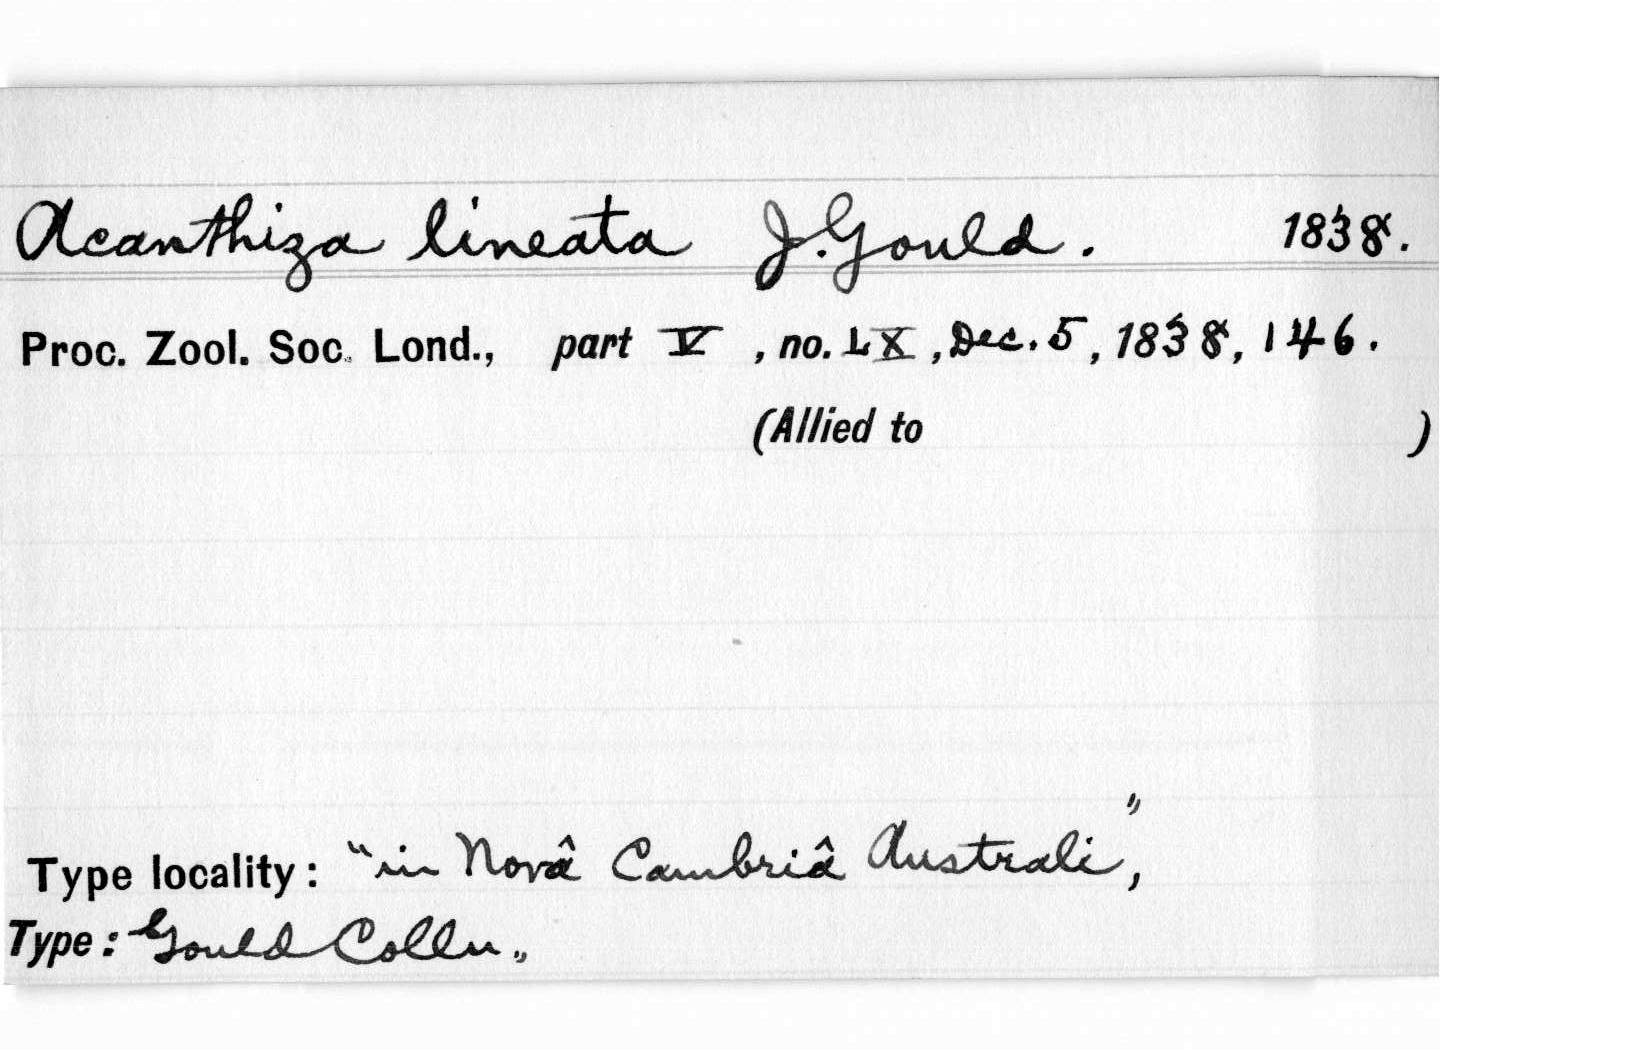 Acanthiza lineata J. Gould. 1838.
Proc. Zool. Soc. Lond., part V, no. LX, Dec. 5, 1838, 146.
(Allied to )
Type locality: "in Novâ Cambriâ Australi",
Type: Gould Colln.